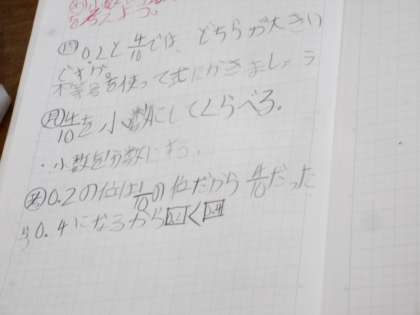 を考えよう。
問 0.2と4/10では、どちらが大きい
ですか。
不等号を使って式にかきましょう
見 4/10を小数にしてくらべる。
・小数を分数にする。
0.2の位は1/10の位だから4/10だった
ら0.4になるから0.2<0.4